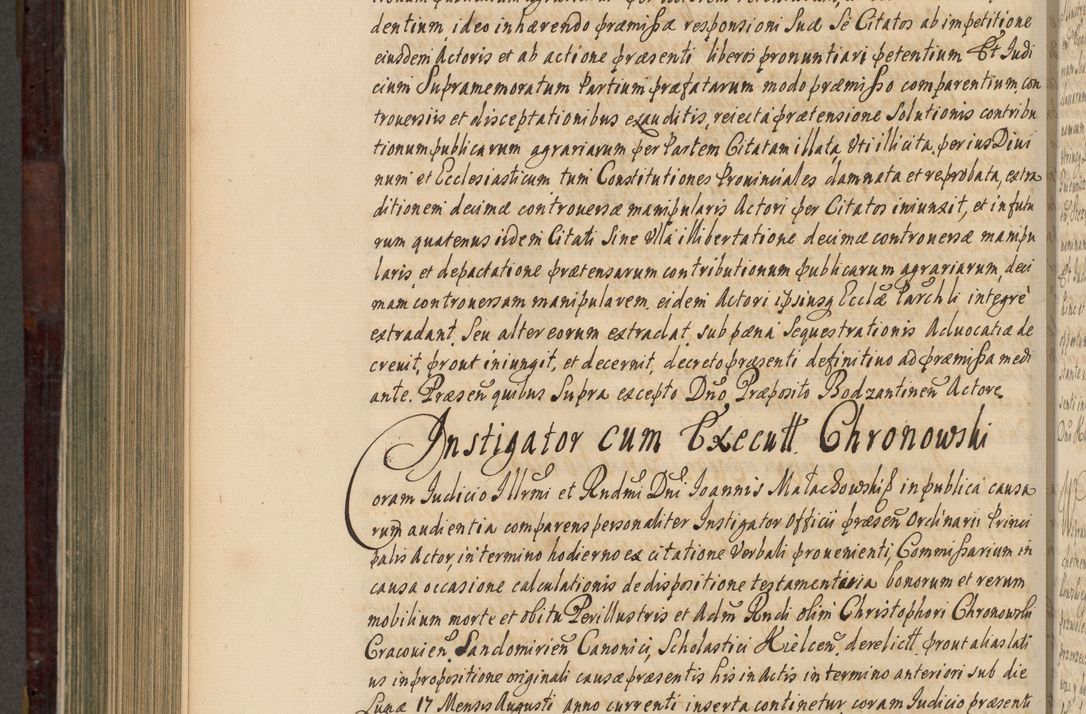 dentium, ideo inhærendo præmissæ responsioni Suæ Se Citatos ab impetitione
eiusdem Actoris et ab actione præsenti liberos pronuntiari petentium Et Judi
cium Supramemoratum Partium præfatarum modo præmisso comparentium, con
trouersiis et disceptationibus exauditis, reiecta prætensione Solutionis contribu
tionum publicarum agrariarum per Partem Citatam illata, Vti illicita, per ius Diui
num et Ecclesiasticum tum Constitutiones Prouinciales damnata et reprobata, extra
ditionem decimæ controuersæ manipularis Actori per Citatos iniunxit, et in futu
rum quatenus iidem Citati Sine Vlla illibertatione decimæ controuersæ manipu
laris, et depactatione prætensarum contributionum publicarum agrariarum, deci
mam controuersam manipularem eidem Actori ipsiusq Ecclæ Parchli integrè
extradant, Seu alter eorum extradat, sub pæna Sequestrationis Aduocatiæ de
creuit, prout iniungit, et decernit, decreto præsenti definitiuo ad præmissa medi
ante. Præseñ quibus Supra excepto Dño Præposito Bodzantineñ Actore.
Instigator cum Executt. Chronowski
Coram Judicio Illrmi et Rndmi Dni Joannis Małachowski in publica causa
rum audientia comparens personaliter Instigator Officii præseñ Ordinarii Princi
palis Actor, in termino hodierno ex citatione Verbali prouenienti, Commissarium in
causa occasione calculationis de dispositione testamentaria bonorum et rerum
mobilium morte et obitu Perillustris et Adm Rndi olim Christophori Chronowski
Cracouieñ. Sandomirieñ Canonici, Scholastici Kielceñ. derelictt prout alias lati
us in propositione originali causæ præsentis his in Actis in termino anteriori sub die
Lunæ 17 Mensis Augusti anno currenti inserta continetur coram Judicio præsenti